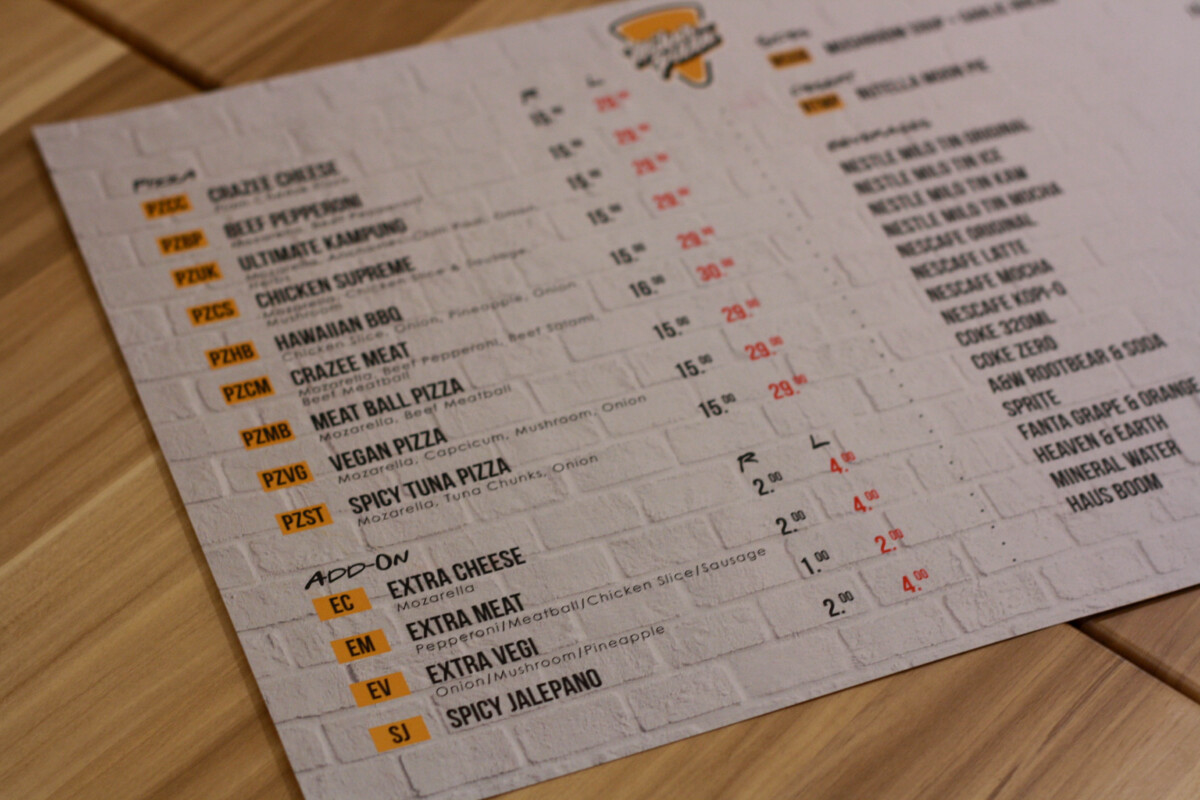 PIZZA
R L
PZCC CRAZEE CHEESE 15.00 29.00
PZBP BEEF PEPPERONI 15.00 29.00
Mozarella, Beef Pepperoni
PZUK ULTIMATE KAMPUNG 15.00 29.00
PZCS CHICKEN SUPREME 15.00 29.00
Mozarella, Chicken Slice & Sausage,
Mushroom
PZHB HAWAIIAN BBQ 15.00 29.00
Chicken Slice, Onion, Pineapple, Onion
PZCM CRAZEE MEAT 16.00 30.00
Mozarella, Beef Pepperoni, Beef Salami
Beef Meatball
PZMB MEAT BALL PIZZA 15.00 29.00
Mozarella, Beef Meatball
PZVG VEGAN PIZZA 15.00 29.00
Mozarella, Capcicum, Mushroom, Onion
PZST SPICY TUNA PIZZA 15.00 29.00
Mozarella, Tuna Chunks, Onion
ADD-ON
R L
EC EXTRA CHEESE 2.00 4.00
Mozarella
EM EXTRA MEAT 2.00 4.00
Pepperoni/Meatball/Chicken Slice/Sausage
EV EXTRA VEGI 1.00 2.00
Onion/Mushroom/Pineapple
SJ SPICY JALEPANO 2.00 4.00
MUSHROOM SOUP + GARLIC BREAD
NUTELLA MOON PIE
NESTLE MILO TIN ORIGINAL
NESTLE MILO TIN ICE
NESTLE MILO TIN KAW
NESTLE MILO TIN MOCHA
NESCAFE ORIGINAL
NESCAFE LATTE
NESCAFE MOCHA
NESCAFE KOPI-O
COKE 320ML
COKE ZERO
A&W ROOTBEAR & SODA
SPRITE
FANTA GRAPE & ORANGE
HEAVEN & EARTH
MINERAL WATER
HAUS BOOM